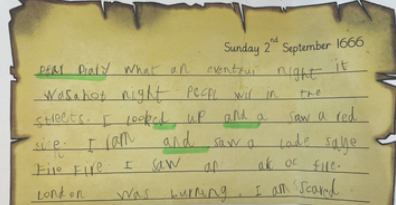 Sunday 2nd September 1666
Dear Diary What an eventful night it
was a hot night in the
streets. I looked up and a saw a red
I ran and saw a
Fire Fire I saw an of fire.
London was burning. I am scared.